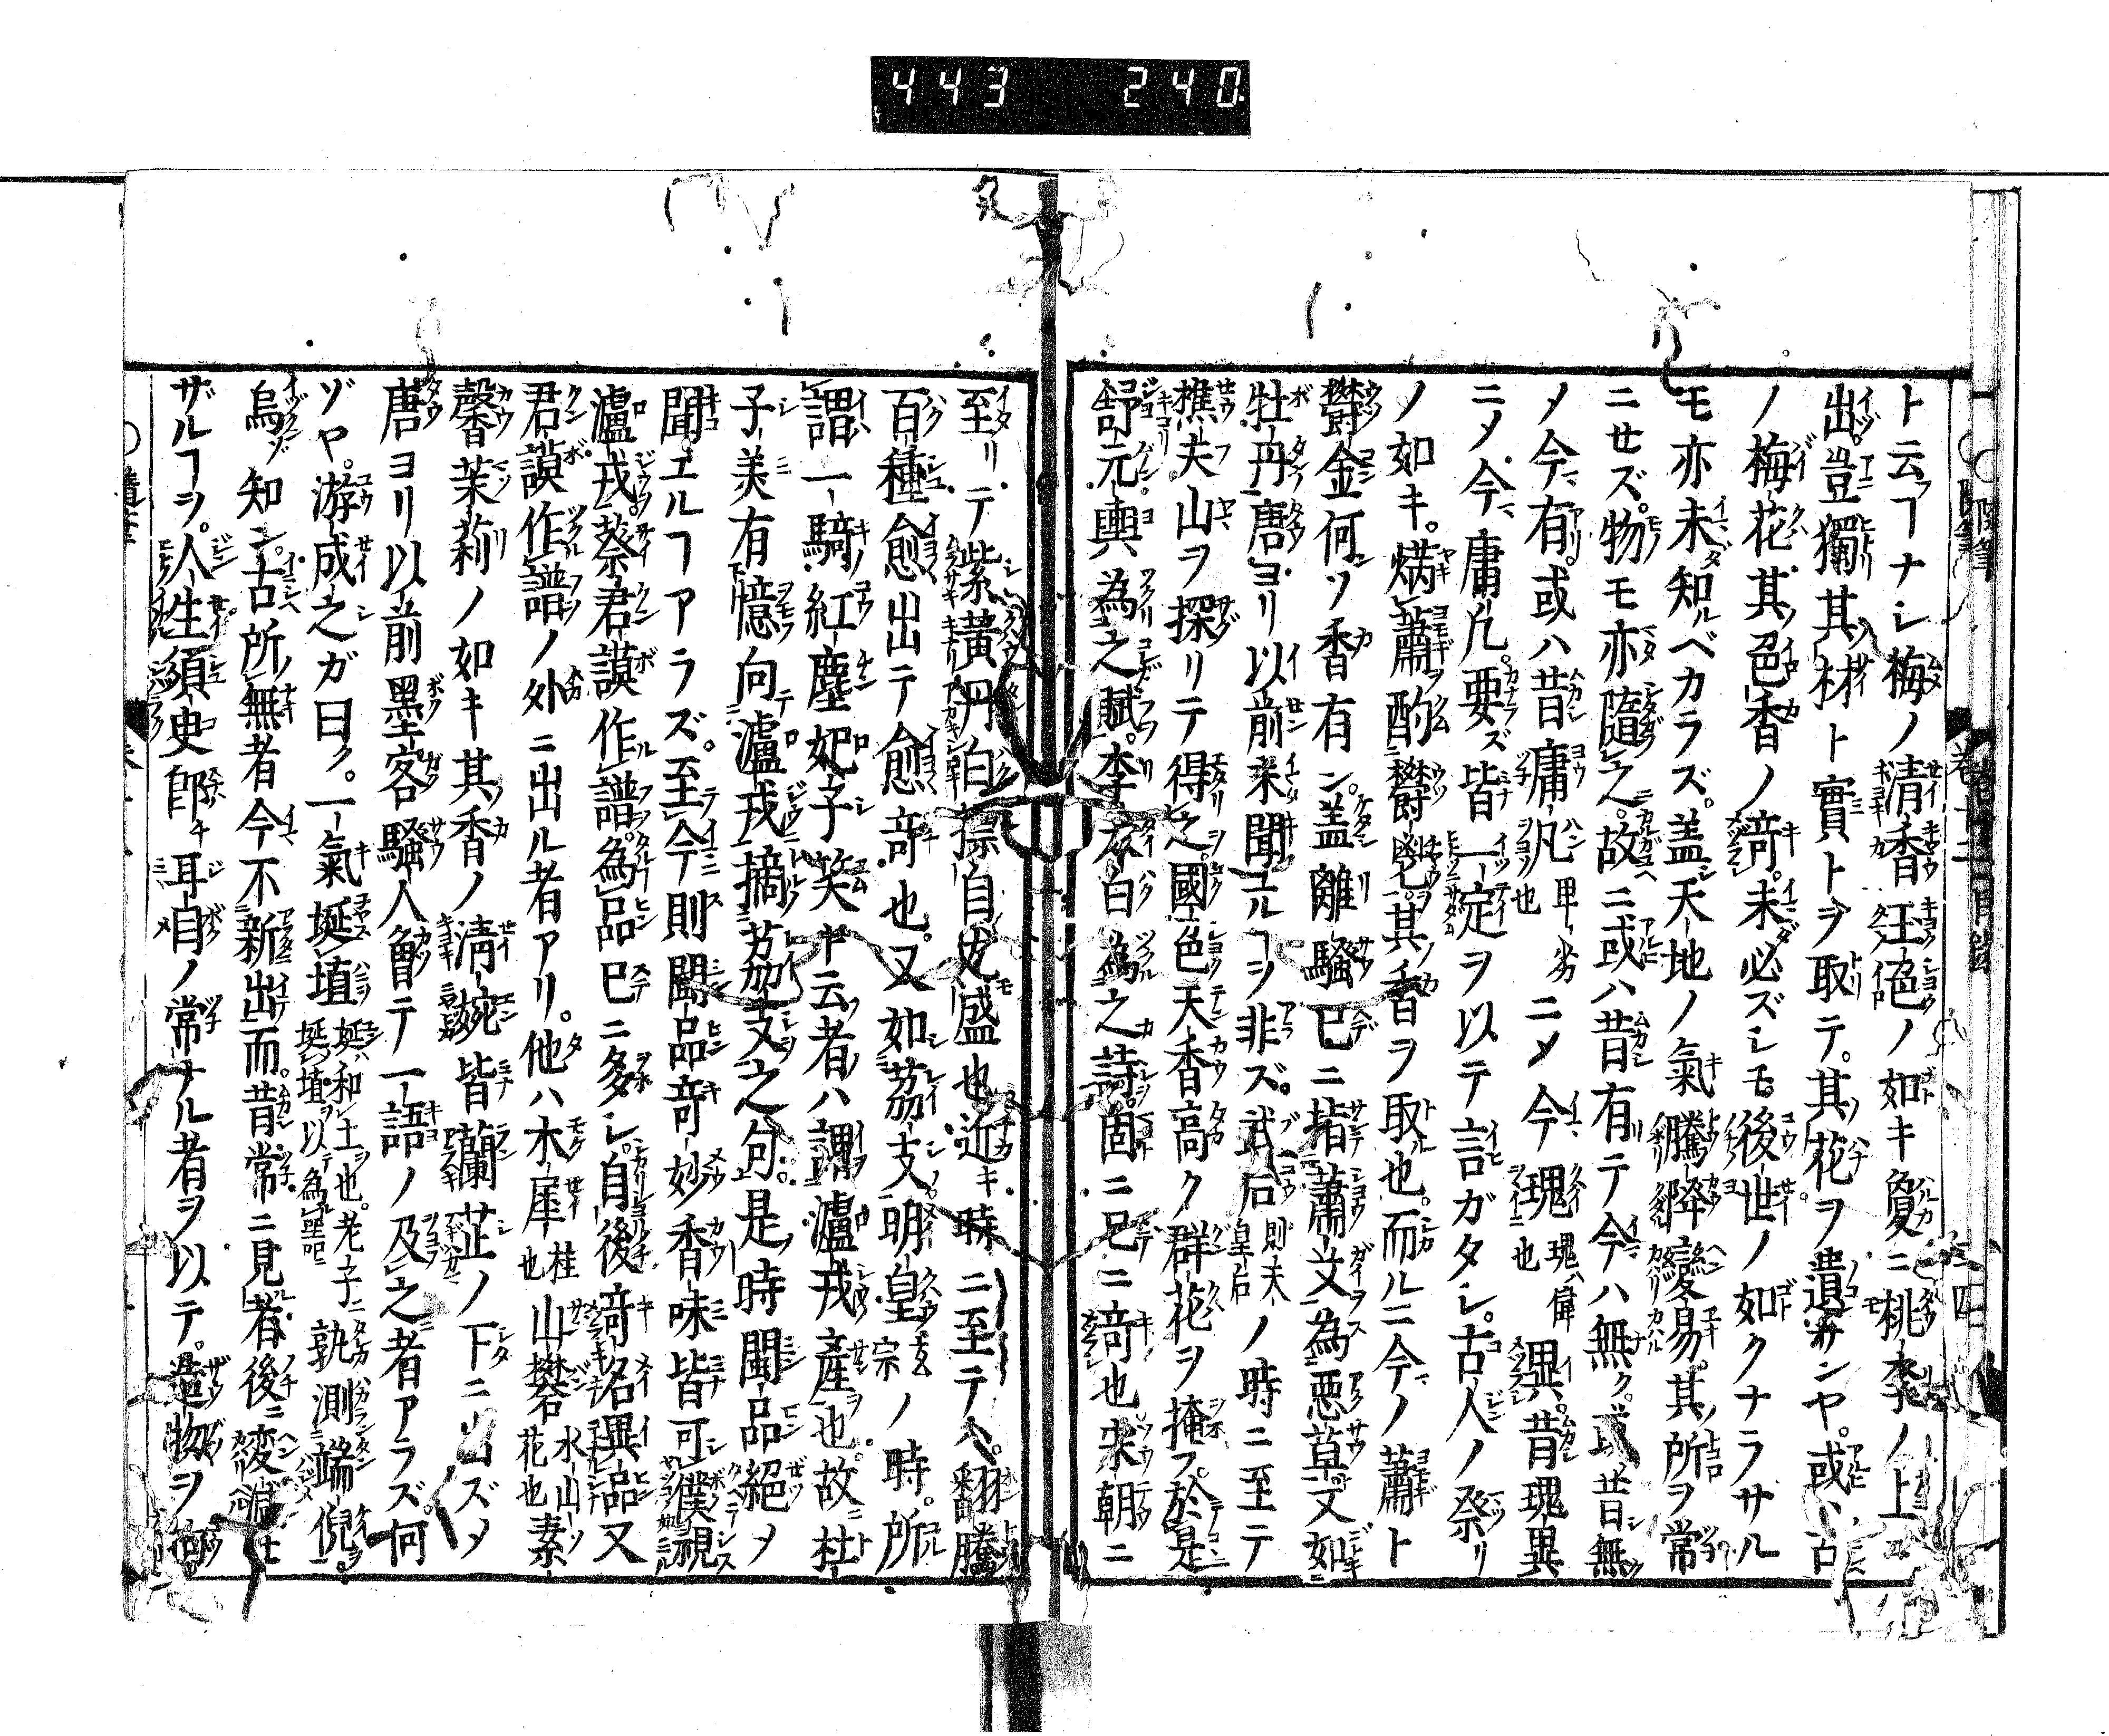 443 240.
卷十二目錄
ト云フヿナシ梅ノ清香玉色ノ如キ夐ニ桃李ノ上ニ
出豈獨其材ト實トヲ取テ其花ヲ遺サンヤ。或ハ古
ノ梅花其色香ノ竒。未必ズシモ。後世ノ如クナラサル
モ亦未知ルベカラズ。盖天地ノ氣騰降變易。其所ヲ常
ニセズ。物モ亦隨之。故ニ或ハ昔有テ今ハ無ク。或昔無
ノ今有。或ハ昔庸凡卑劣也ニメ今瑰瑰ハ偉也異。昔瑰異
ニメ今庸凡。要ズ皆一定ヲ以テ言ガタシ。古人ノ祭リ
ノ如キ。焫蕭酌鬱鬯。其香ヲ取也。而ルニ今ノ蕭ト
鬱金何ソ香有ン。盖離騷已ニ指蕭艾為惡草又如
牡丹唐ヨリ以前未聞ユルヿヲ非ズ。武后則天皇后ノ時ニ至テ
樵夫山ヲ探リテ得之國色天香高ク群花ヲ掩フ於是
舒元輿為之賦。李太白為之詩。固ニ已ニ竒也宋朝ニ
至リテ紫黃丹白標自皮盛也近キ時ニ至テハ。翻騰
百種愈出テ愈竒也。又如茘支明皇玄宗ノ時。所
謂一騎紅塵妃子笑ヤ云者ハ謂瀘戎產也。故ニ杜
子美有憶向瀘戎摘茘支之句。是時閩品絕メ
聞ユルヿアラズ。至今則閩品竒妙香味皆可僕視
瀘戎。蔡君謨作譜。為品已ニ多シ。自後竒名異品又
君謨作譜ノ外ニ出ル者アリ。他ハ木犀桂也山礬水山花也素
馨茉莉ノ如キ其香ノ清婉皆蘭芷ノ下ニ出ズメ
唐ヨリ以前墨客騷人曾テ一語ノ及之者アラズ。何
ゾヤ。游成之ガ曰ク。一氣埏埴埏ハ和土也。老子ニ埏埴以テ為器孰測端倪。
烏ゾ知ン。古所無者今不新出而。昔常ニ見者。後ニ変滅セ
ザルヿヲ。人生須臾即チ耳自ノ常ナル者ヲ以テ。造物ヲ